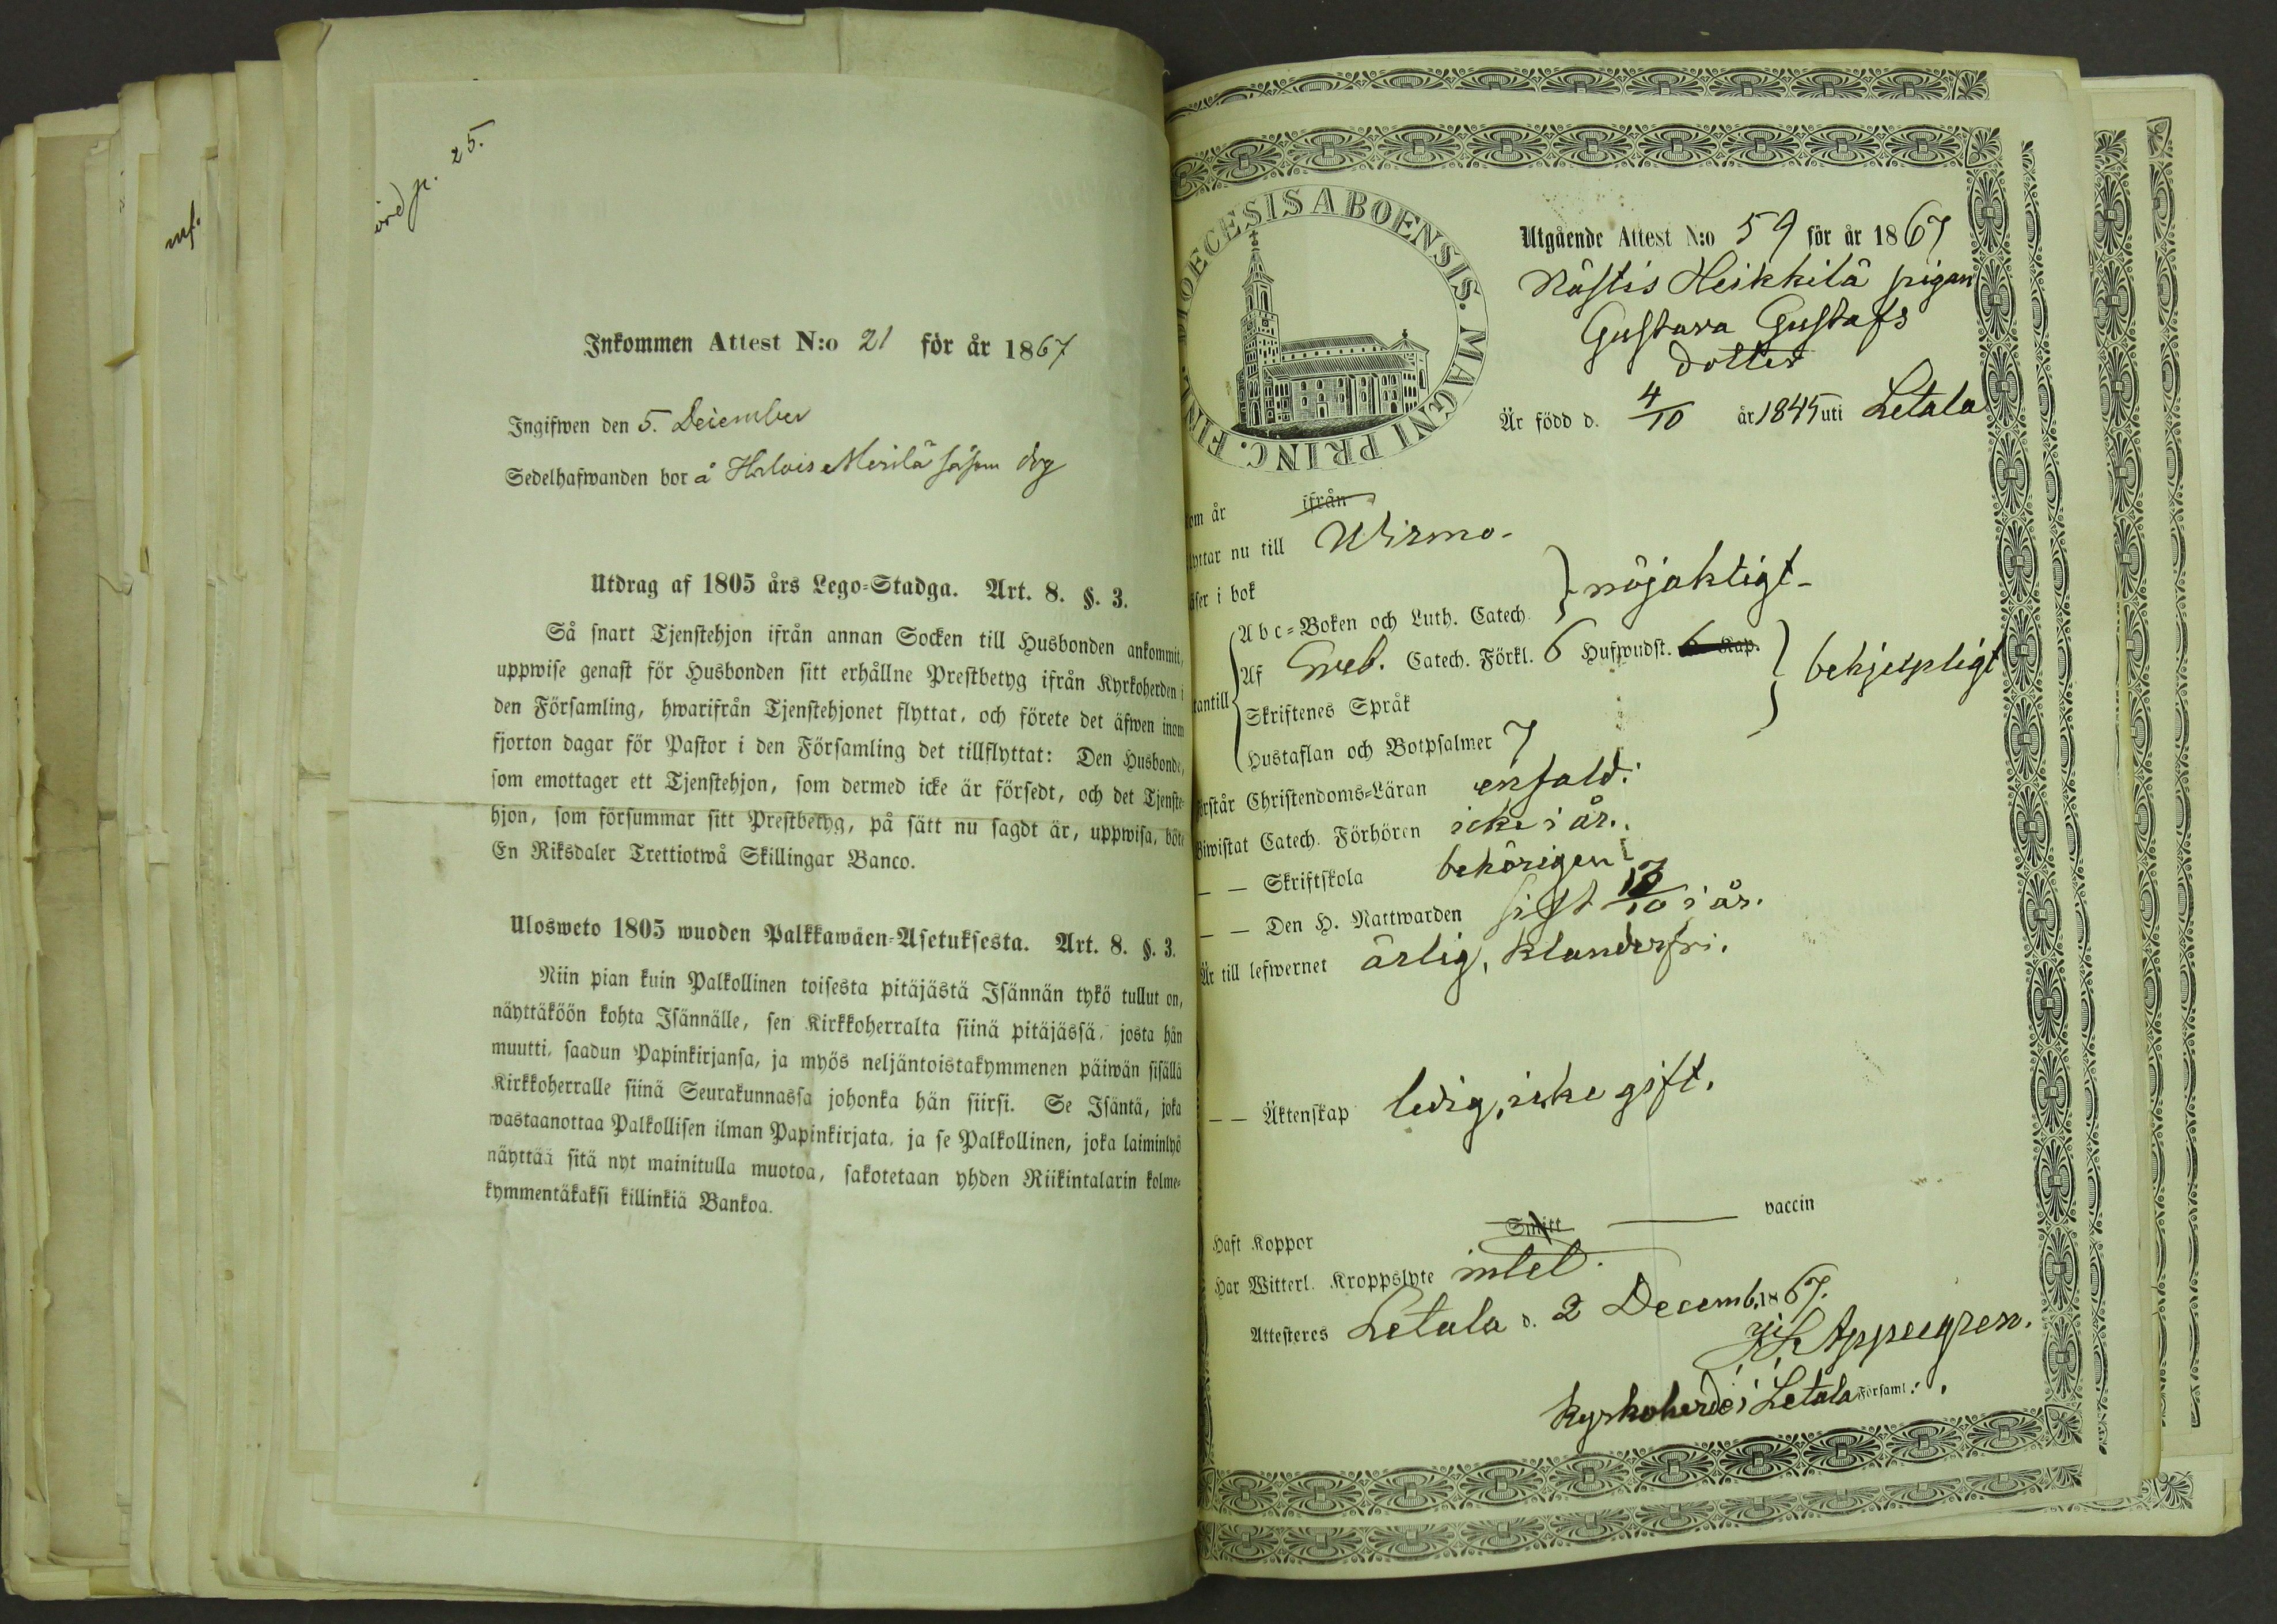 p. 25.
mf.
Inkommen Attest N:o 21 för år 1867
Ingifwen den 5. December
Sedelhafwanden bor å Halvois Merilä såsom drg
Utdrag af 1805 års Lego-Stadga. Art. 8. §. 3.
Så snart Tjenstehjon ifrån annan Socken till Husbonden ankommit,
uppwise genast för Husbonden sitt erhållne Prestbetyg ifrån Kyrkoherden i
den Församling, hwarifrån Tjenstehjonet flyttat, och förete det äfwen inom
fjorton dagar för Pastor i den Församling det tillflyttat: Den Husbonde,
som emottager ett Tjenstehjon, som dermed icke är försedt, och det Tjenste-
hjon, som försummar sitt Prestbetyg, på sätt nu sagdt är, uppwisa, böte
En Riksdaler Trettiotwå Skillingar Banco.
Ulosweto 1805 wuoden Palkkawäen-Asetuksesta. Art. 8. §. 3.
Niin pian kuin Palkollinen toisesta pitäjästä Isännän tykö tullut on,
näyttäköön kohta Isännälle, sen Kirkkoherralta siinä pitäjässä, josta hän
muutti, saadun Papinkirjansa, ja myös neljäntoistakymmenen päiwän sisällä
Kirkkoherralle siinä Seurakunnassa johonka hän siirsi. Se Isäntä, joka
wastaanottaa Palkollisen ilman Papinkirjata, ja se Palkollinen, joka laiminlyö
näyttää sitä nyt mainitulla muotoa, sakotetaan yhden Riikintalarin kolme-
kymmentäkaksi killinkiä Bankoa.
DIOECESIS ABOENSIS. MAGNI PRINC. FINL.
Utgående Attest N:o 59 för år 1867
Nästis Heikkilä pigan
Gustava Gustafs
dotter
Är född d. 4/10 år 1845 uti Letala
om år ifrån
lyttar nu till Wirmo.
äser i bok
Abc-Boken och Luth. Catech. } nöjaktigt
tantill Af Sveb. Catech. Förkl. 6 Hufwudst. 6 Kap. } behjelpligt
Skriftenes Språk
Hustaflan och Botpsalmer 7
örstår Christendoms-Läran enfald.
Biwistat Catech. Förhören icke i år.
— — Skriftskola behörigen
— — Den H. Nattwarden sist /10 i år.
Är till lefwernet ärlig, klanderfri.
— — Äktenskap ledig, icke gift.
Haft Koppor Smitt — vaccin
Har Witterl. Kroppslyte intet.
Attesteres Letala d. 2 Decemb. 1867.
Appelgren.
Kyrkoherde i Letala Församl:.